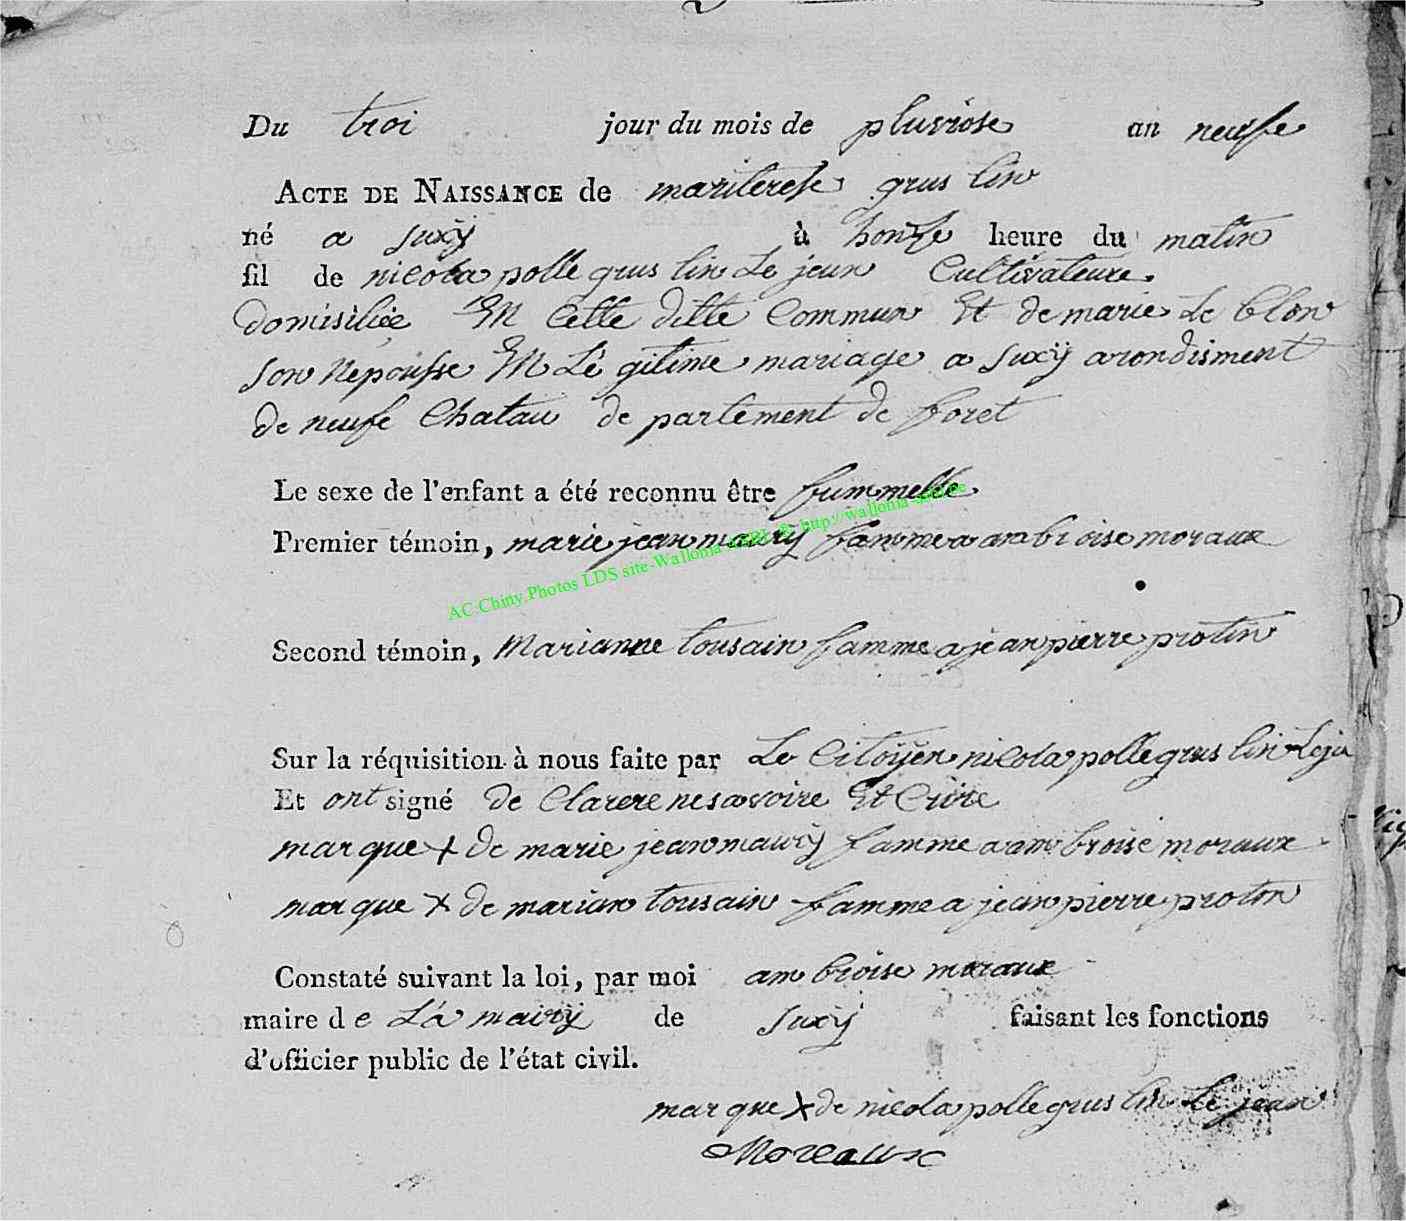 Du troi jour du mois de pluviose an neufe
ACTE DE NAISSANCE de mariterese grus lin
né a suxÿ à honze heure du matin
fil de nicola polle grus lin Le jeun Cultivateure
domisiliée En Cette ditte Commun Et de marie Le blon
son nepousse En Lé gitime mariage a suxÿ arondisment
de neufe Chatau de partement de foret
Le sexe de l'enfant a été reconnu être fummelle
Premier témoin, marie jean maurÿ famme a ambroise moraux
AC.Chiny.Photos LDS site-Wallonia http://wallonia
Second témoin, Marianne tousain famme a jean pierre protin
Sur la réquisition à nous faite par Le Citoÿen nicola polle grus lin Leje
Et ont signé de Clarere nesavoire Et Crire
marque + de marie jean maurÿ famme a ambroise moraux
marque + de marian tousain famme a jean pierre protin
Constaté suivant la loi, par moi ambroise moraux
maire de La mairÿ de suxÿ faisant les fonctions
d'officier public de l'état civil.
marque + de nicola polle grus lin Le jean
Moreaux